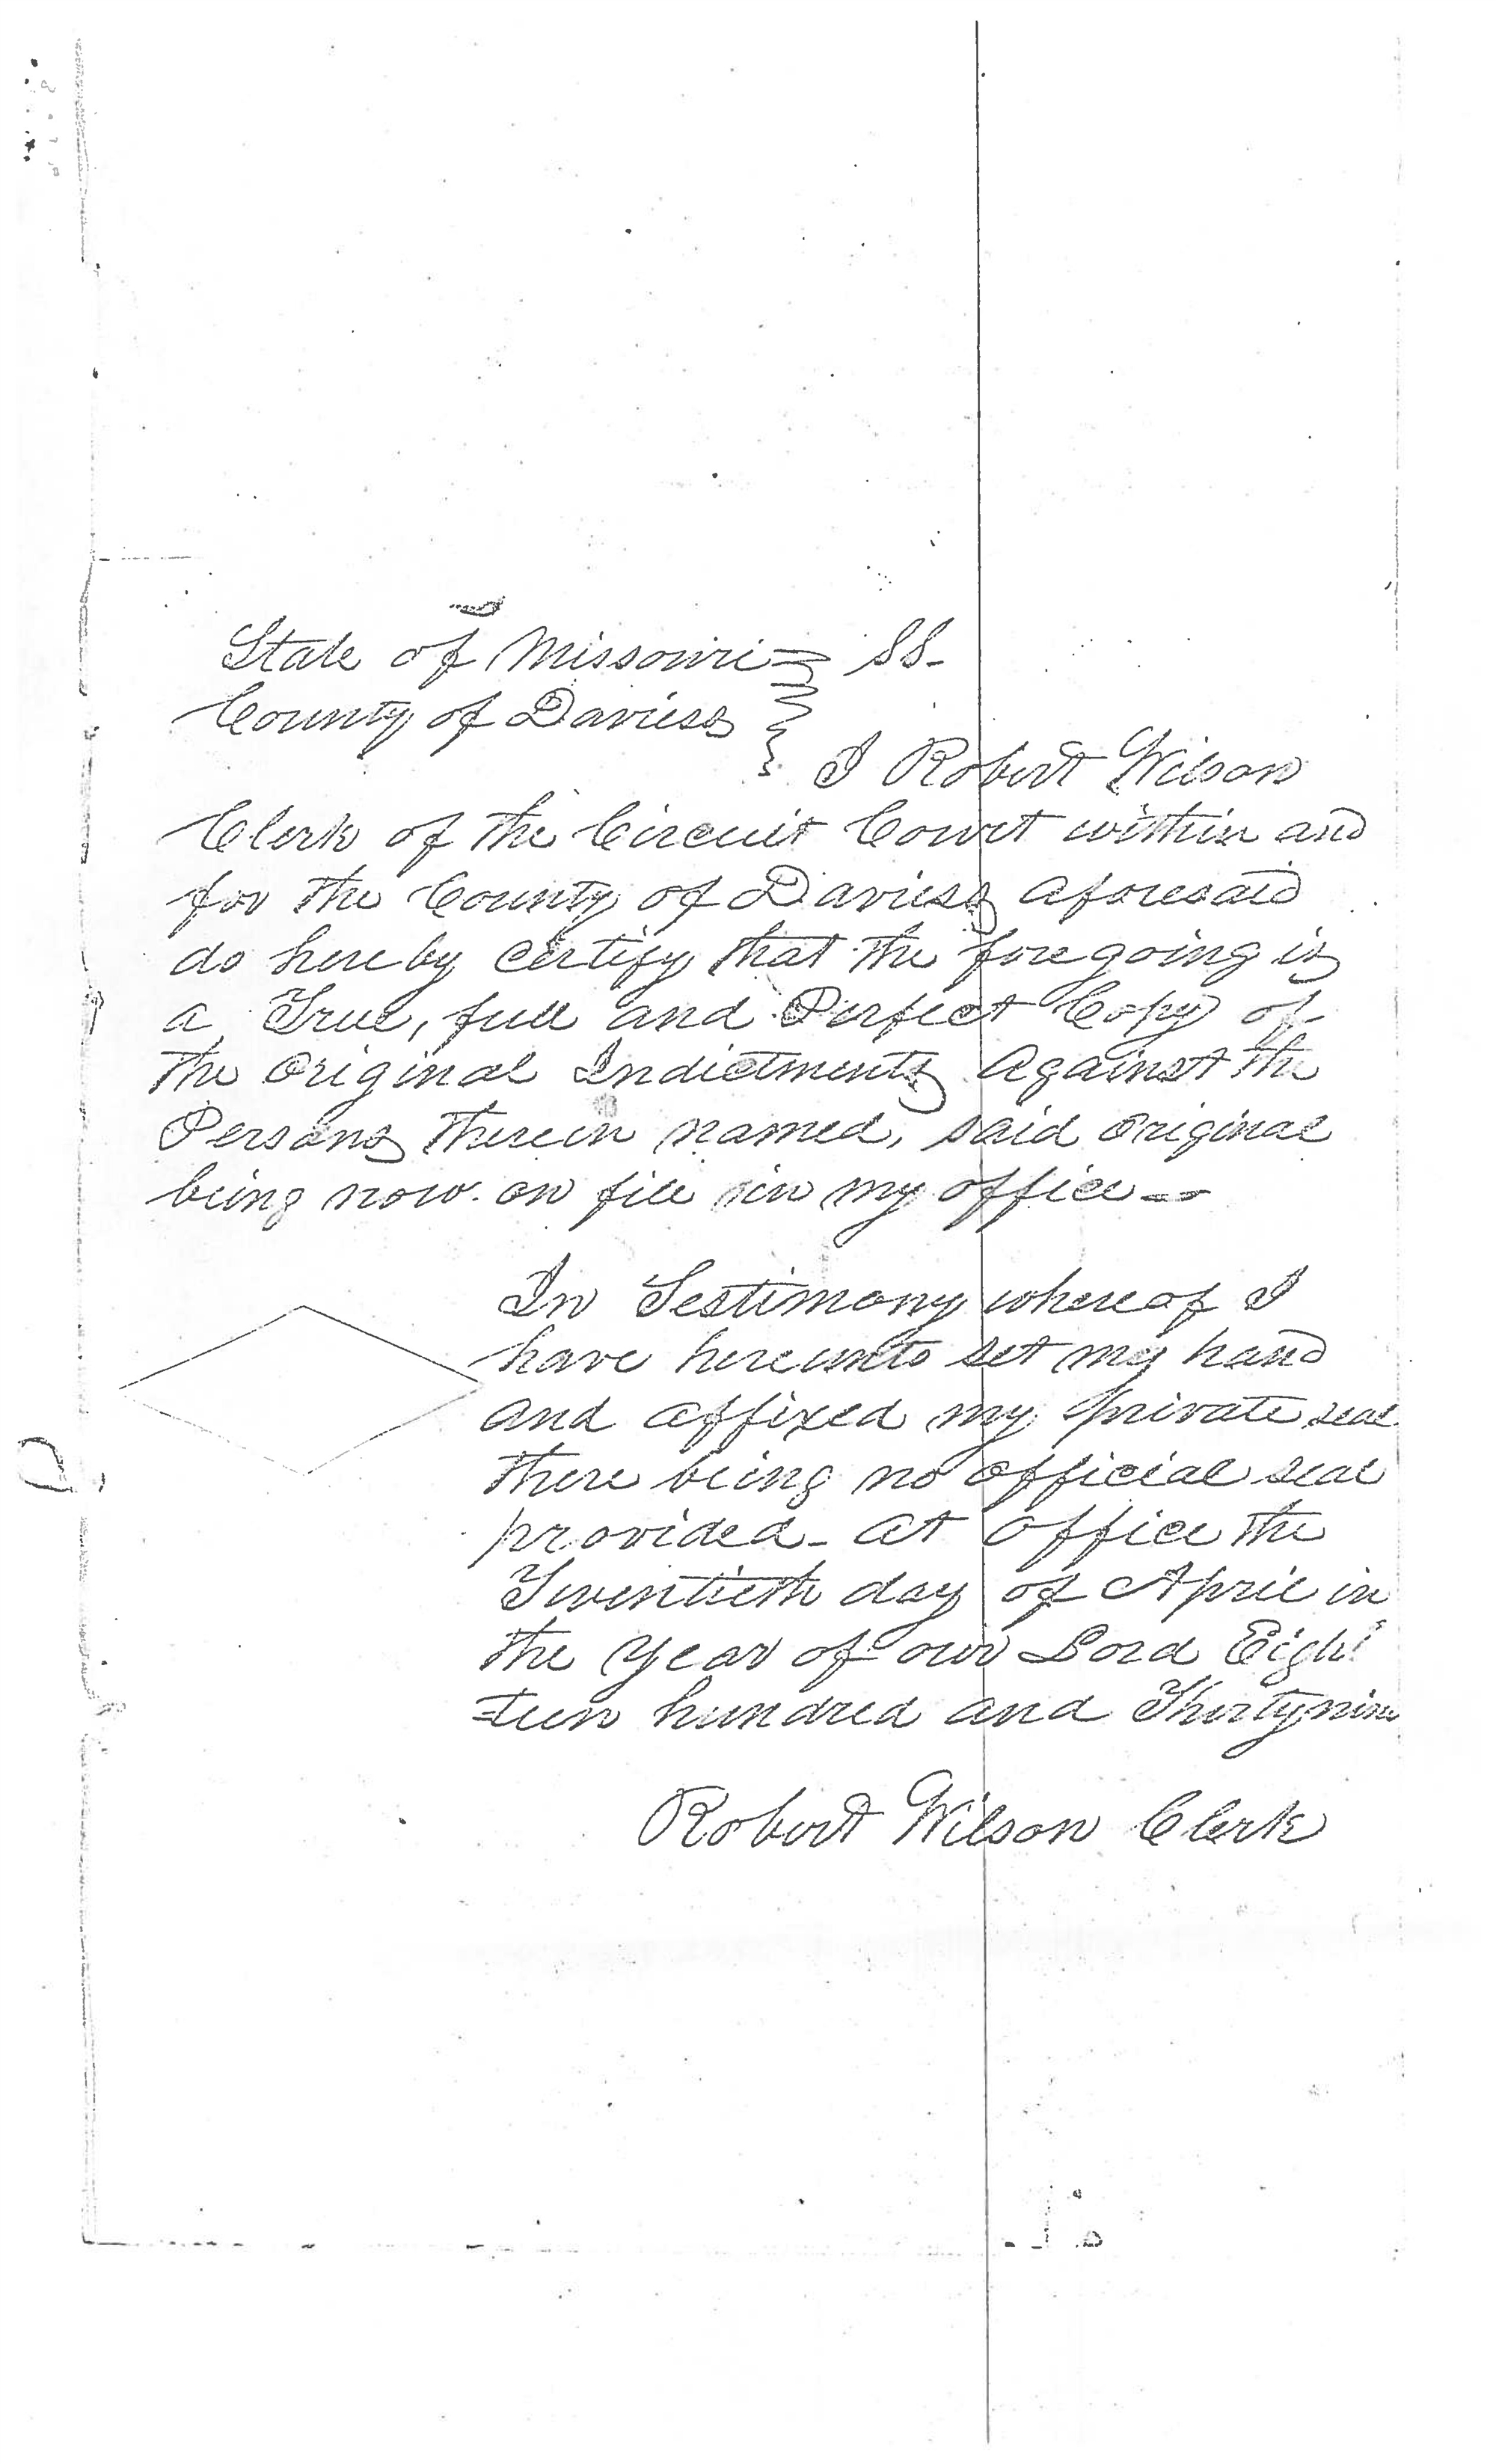 State of Missouri } SS-
County of Daviess }
I Robert Wilson
Clerk of the Circuit Court within and
for the County of Daviess aforesaid
do hereby certify that the foregoing is
a True, full and Perfect Copy of
the original Indictments against the
Persons therein named, said original
being now on file in my office --
In Testimony whereof I
have hereunto set my hand
and affixed my private seal
there being no official seal
provided - at office the
Twentieth day of April in
the year of our Lord Eigh
=teen hundred and Thirty nine
Robert Wilson Clerk